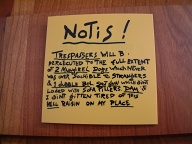 NOTIS!
TRESPASSERS WILL B
PERSECUTED TO THE FULL EXTENT
OF 2 MUNGREL DOGS WHICH NEVER
WAS OVER SOCIBLE TO STRANGERS
& 1 DUBBLE BRL SHOT GUN WHICH AINT
LOADED WITH SOFA PILLERS. DAM IF
I AINT GITTEN TIRED OF THIS
HELL RAISIN ON MY PLACE